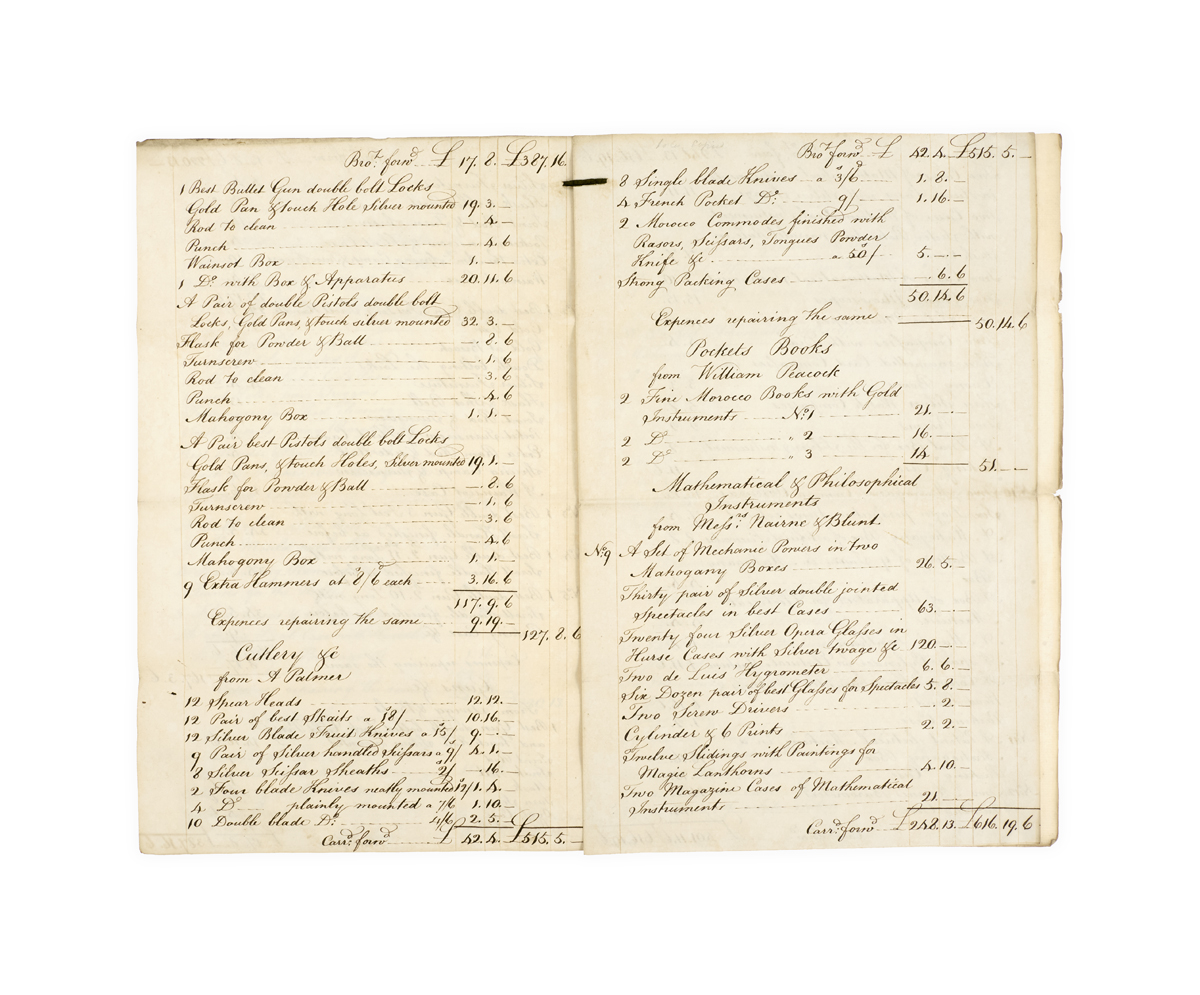 Bro.t forw.d £ 17. 8. £387. 16.
1 Best Bullet Gun double bolt Locks
Gold Pan & touch Hole Silver mounted 19. 3. —
Rod to clean —. 4. —
Punch —. 4. 6
Wainsot Box 1. —
1 D.o with Box & Apparaties 20. 11. 6
A Pair of double Pistols double bolt
Locks, Gold Pans, & touch silver mounted 32. 3. —
Flask for Powder & Ball —. 8. 6
Turnscrew —. 1. 6
Rod to clean —. 3. 6
Punch —. 4. 6
Mahogony Box 1. 1. —
A Pair best Pistols double bolt Locks
Gold Pans, & touch Holes, Silver mounted 19. 1. —
Flask for Powder & Ball —. 8. 6
Turnscrew —. 1. 6
Rod to clean —. 3. 6
Punch —. 4. 6
Mahogony Box 1. 1. —
9 Extra Hammers at 8/6 each 3. 16. 6
117. 9. 6
Expences repairing the same 9. 19. — 127. 8. 6
Cutlery &c
from A Palmer
12 Spear Heads 12. 12. —
12 Pair of best Skaits a 18/ 10. 16. —
12 Silver Blade Fruit Knives a 15/ 9. —
9 Pair of Silver handled Scissars a 9/ 4. 1. —
8 Silver Scissar Sheaths 2/ —. 16. —
2 Four blade Knives neatly mounted 12/ 1. 4. —
4 D.o plainly mounted a 7/6 1. 10. —
10 Double blade D.o 4/6 2. 5. —
Carr.d forw.d £ 42. 4. — £515. 5. —
Bro.t forw.d £ 42. 4. £515. 5. —
8 Single blade Knives a 3/6 1. 8. —
4 French Pocket D.o 9/ 1. 16. —
2 Morocco Commodes finished with
Rasors, Scissars, Tongues Powder
Knife &c a 50/ 5. —
Strong Packing Cases . 6. 6
50. 14. 6
Expences repairing the same 50. 14. 6
Pockets Books
from William Peacock
2 Fine Morocco Books with Gold
Instruments N.o 1 21. —
2 D.o " 2 16. —
2 D.o " 3 14 51. —
Mathematical & Philosophical
Instruments
from Mess.rs Nairne & Blunt.
N.o 9 A Set of Mechanic Powers in two
Mahogany Boxes 26. 5. —
Thirty pair of Silver double jointed
Spectacles in best Cases 63. —
Twenty four Silver Opera Glasses in
Hurse Cases with Silver twage &c 120. —
Two de Luis' Hygrometer 6. 6. —
Six Dozen pair of best Glasses for Spectacles 5. 8. —
Two Screw Drivers . 2. —
Cylinder & 6 Prints 2. 2. —
Twelve Slidings with Paintings for
Magic Lanthorns 4. 10. —
Two Magazine Cases of Mathematical
Instruments 21. —
Carr.d forw.d £248. 13. £616. 19. 6